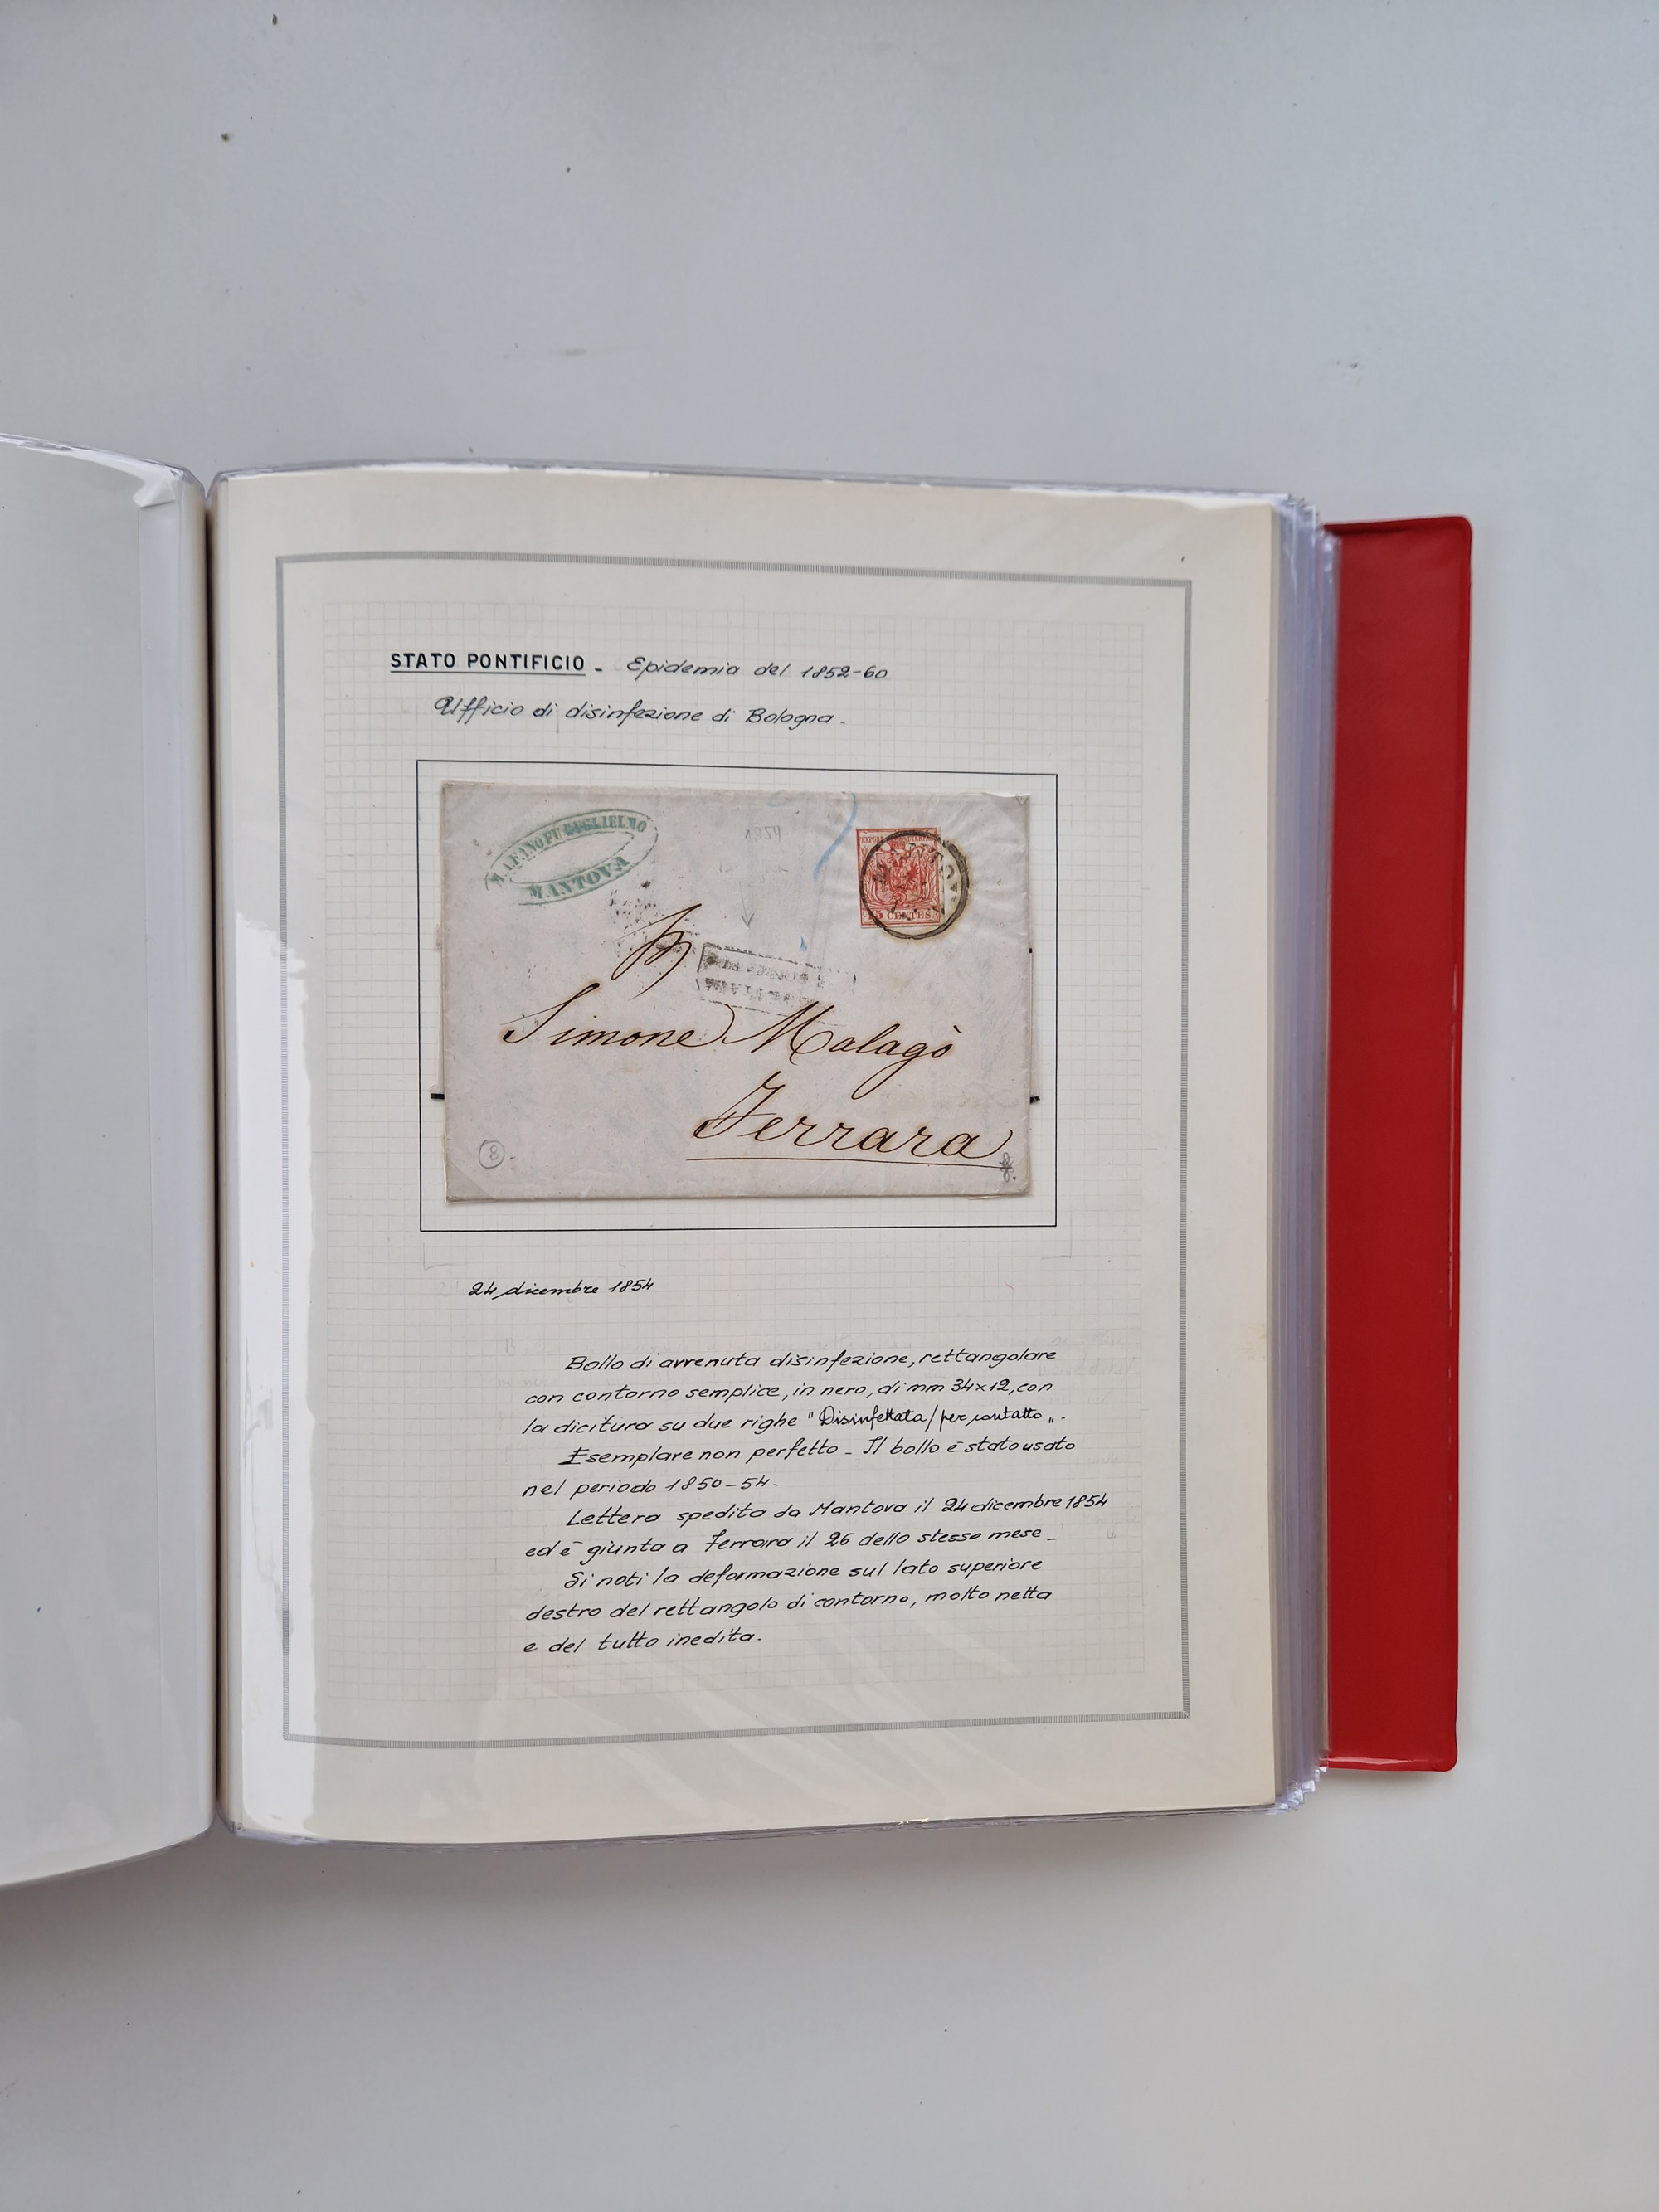 STATO PONTIFICIO - Epidemia del 1852-60
Ufficio di disinfezione di Bologna.
GUGLIELMO
MANTOVA
15 CENTES
Simone Malagò
Ferrara
8
24 dicembre 1854
Bollo di avvenuta disinfezione, rettangolare
con contorno semplice, in nero, di mm 34x12, con
la dicitura su due righe "Disinfettata/per contatto".
Esemplare non perfetto - Il bollo è stato usato
nel periodo 1850-54-
Lettera spedita da Mantova il 24 dicembre 1854
ed è giunta a Ferrara il 26 dello stesso mese -
Si noti la deformazione sul lato superiore
destro del rettangolo di contorno, molto netta
e del tutto inedita.